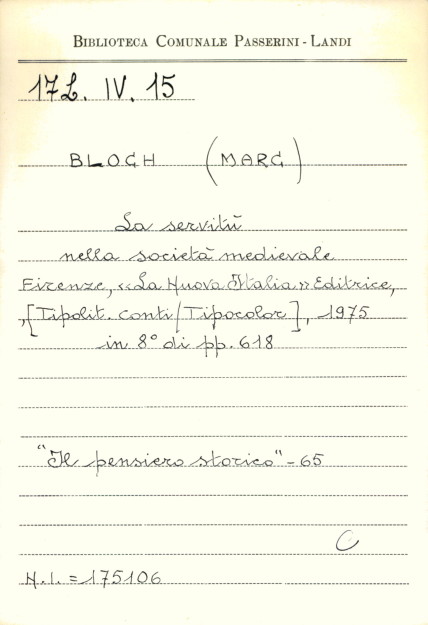 BIBLIOTECA COMUNALE PASSERINI - LANDI
17L. IV. 15
BLOCH (MARC)
La servitù
nella società medievale
Firenze, «La Nuova Italia» Editrice,
,[Tipolit. Conti/Tipocolor], 1975
in 8° di pp. 618
"Il pensiero storico" - 65
C
N.I. = 175106